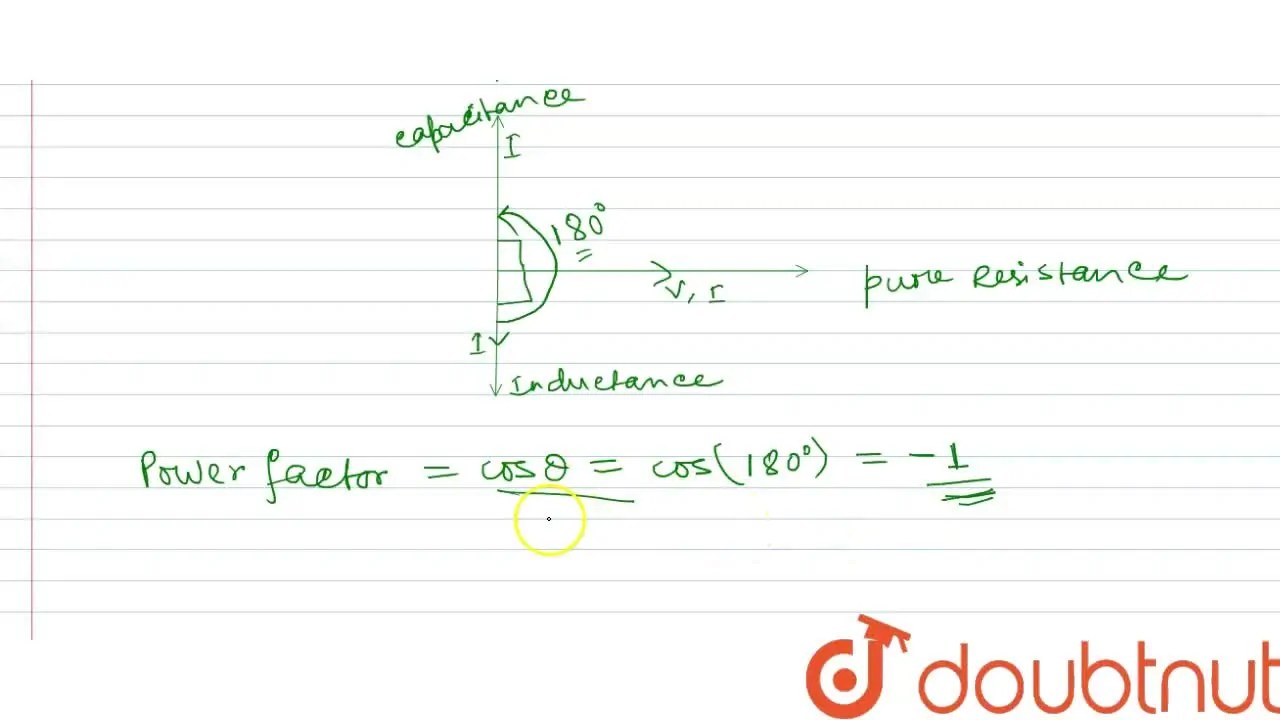 capacitance
I
180°
V, I
pure Resistance
I
Inductance
Power factor = cosθ = cos(180°) = -1
doubtnut